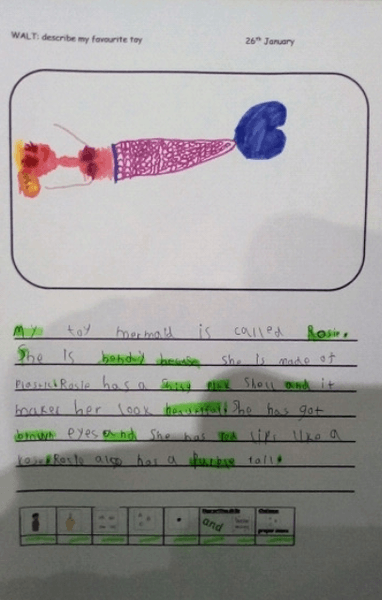 WALT: describe my favourite toy
26th January
My toy mermaid is called Rosie.
She Is because she Is made of
Rosie has a pink Shell and it
makes her look She has got
brown eyes and She has red Lips Like a
Rosie also has a purple tail.
and